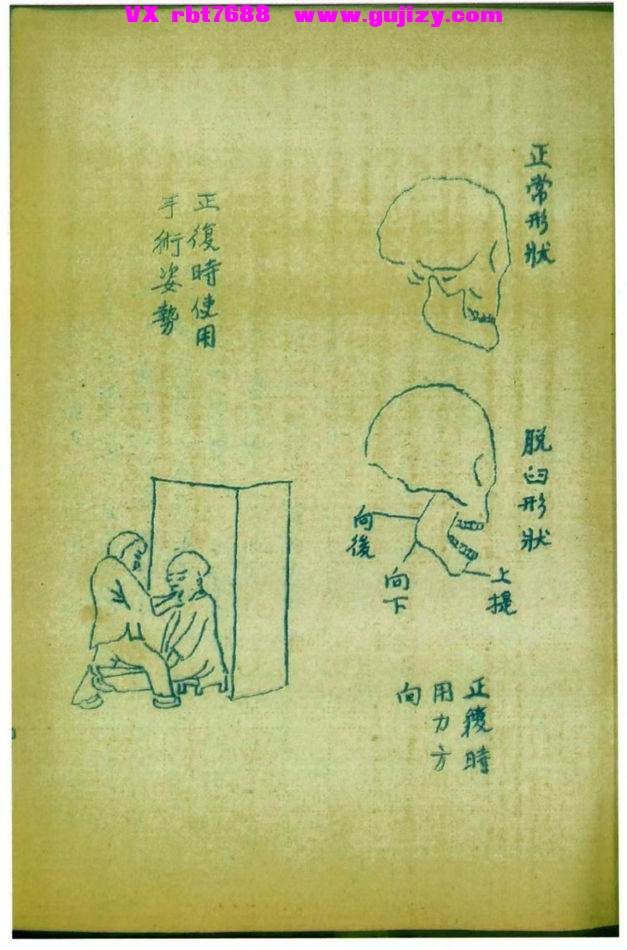 VX rbt7688 www.gujizy.com
正常形狀
脫臼形狀
向後
向下
上提
正復時
用力方
向
正復時使用
手術姿勢